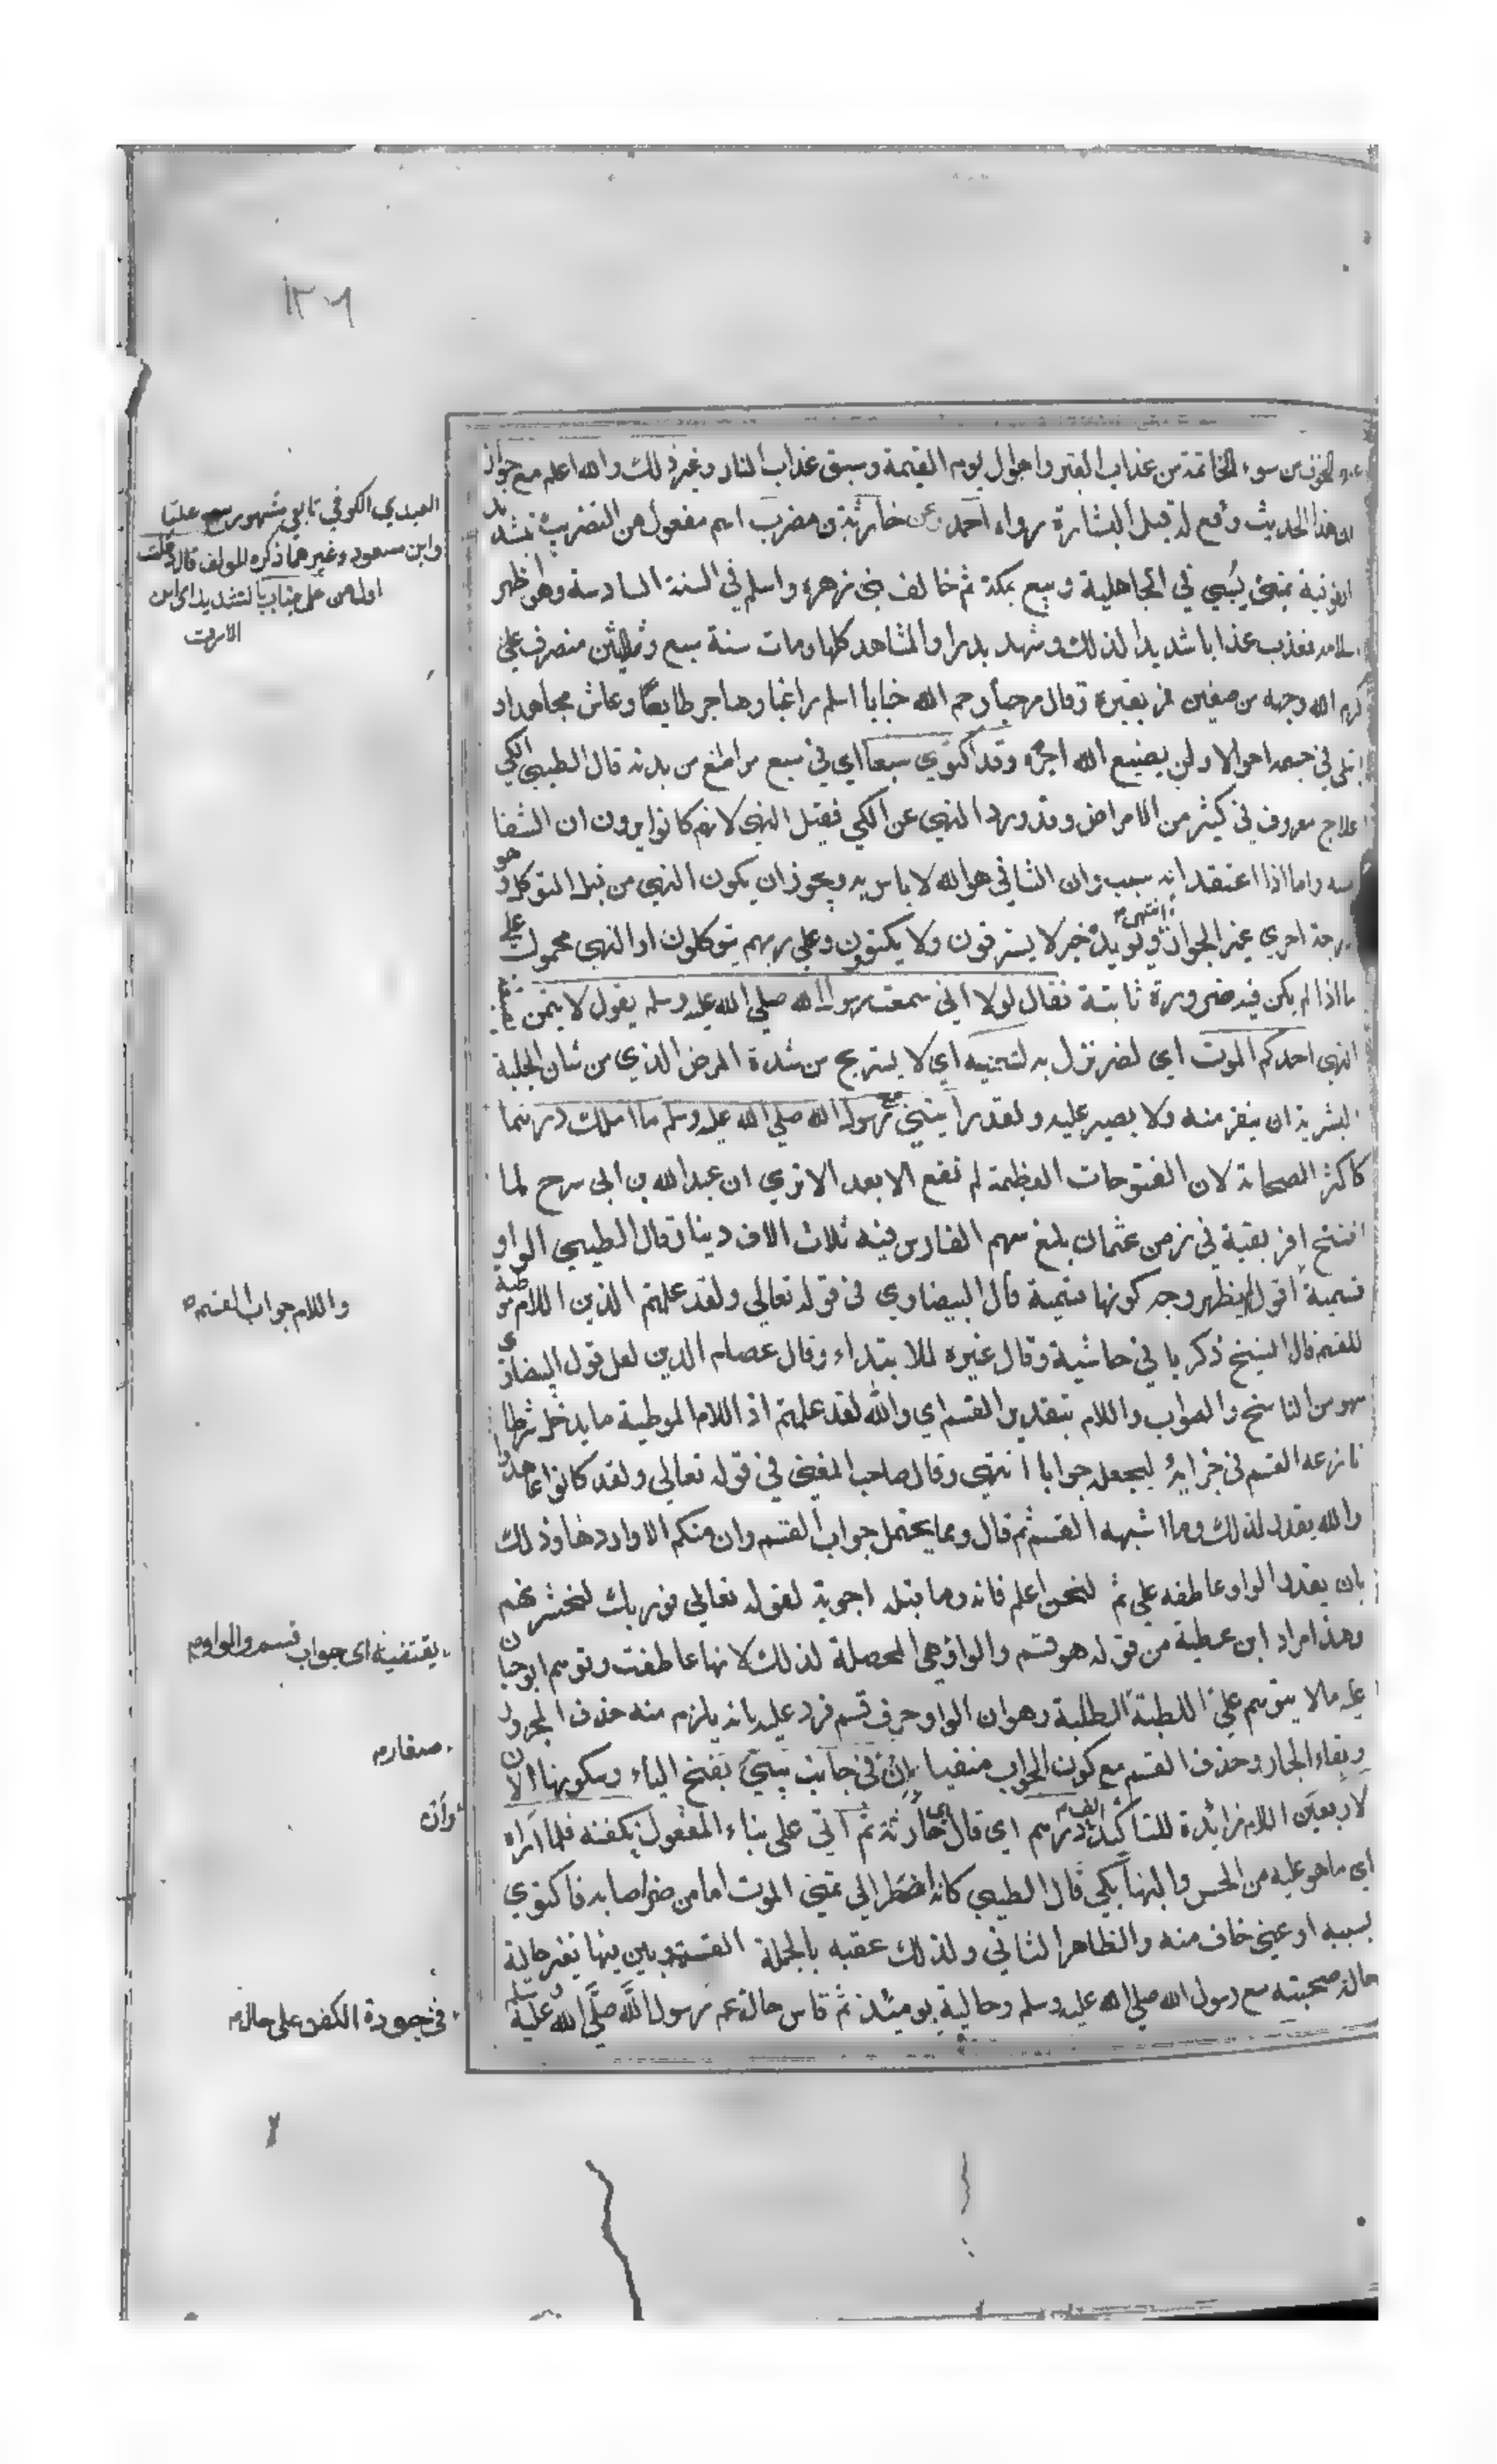 ١٣٠٦
الخوف من سوء الخاتمة من عذاب القبر واهوال يوم القيمة وسبق عذاب النار وغير ذلك والله اعلم مع جواز
ان هذا الحديث وقع له قبل البشارة رواه احمد وعن حارثة بن مضرب اسم مفعول من التضريب تمشد يد
الفوقية تميمي سُبي في الجاهلية وبيع بمكة ثم حالف بني زهرة واسلم في السنة السادسة وهو اظهر
سلامه فعذب عذابا شديدا لذلك وشهد بدرا والمشاهد كلها ومات سنة سبع وثلاثين منصرف علي
كرم الله وجهه من صفين فمر بقبره وقال مرحبا رحم الله خبابا اسلم راغبا وهاجر طايعا وعاش مجاهدا و
ابتلى في جسمه احوالا ولن يضيع الله اجره وقد اكتوى سبعا اي في سبع مواضع من بدنه قال الطيبي الكي
علاج معروف في كثير من الامراض وقد ورد النهي عن الكي فقيل النهي لانهم كانوا يرون ان الشفا
منه واما اذا اعتقد انه سبب وان الشافي هو الله لا باس به ويجوز ان يكون النهي من قبل التوكل وهو
درجة اخرى غير الجواز انتهى ويؤيده خبر لا يسترقون ولا يكتوون وعلى ربهم يتوكلون او النهي محمول على
ما اذا لم يكن فيه ضرورة ثابتة فقال لولا اني سمعت رسول الله صلى الله عليه وسلم يقول لا يتمن
النهي احدكم الموت اي لضر نزل به لتمنيته اي لا يستريح من شدة المرض الذي من شان الجبلة
البشرية ان ينفر منه ولا يصبر عليه ولقد رايتني مع رسول الله صلى الله عليه وسلم ما املك درهما
كاكثر الصحابة لان الفتوحات العظيمة لم تقع الا بعد الا ترى ان عبد الله بن ابي سرح لما
افتتح افريقية في زمن عثمان بلغ سهم الفارس فيه ثلاث الاف دينار قال الطيبي الواو
قسمية اقول لم يظهر وجه كونها قسمية قال البيضاوي في قوله تعالى ولقد علمتم الذين اللام موطية
للقسم قال الشيخ زكريا في حاشية وقال غيره للابتداء وقال عصام الدين لعل قول البيضاوي
سهو من الناسخ والصواب واللام بتقدير القسم اي والله لقد علمتم اذ اللام الموطية ما يدخل شرطا
نازعه القسم في جزايه ليجعله جوابا انتهى وقال صاحب المغني في قوله تعالى ولقد كانوا عاهدوا
والله يقدر لذلك وما اشبهه القسم ثم قال ومما يحتمل جواب القسم وان منكم الا واردها وذلك
بان يقدر الواو عاطفه على ثم لنحن اعلم فانه وما قبله اجوبة لقوله تعالى فوربك لنحشرنهم
وهذا مراد ابن عطية من قوله هو قسم والواو هي المحصلة لذلك لانها عاطفت وتوهم ابو حيان
عليه مالا يتوهم على الطلبة وهو ان الواو حرف قسم فرد عليه بانه يلزم منه حذف المجرور
وبقاء الجار وحذف القسم مع كون الجواب منفيا بإن في جانب بيتي بفتح الياء وسكونها الان
لاربعين اللام زائدة للتاكيد الف درهم اي قال اي حارثة ثم اتي على بناء المفعول بكفنه فلما راه
اي ما هو عليه من الحسن والبهاء بكى قال الطيبي كانه اضطر الى تمني الموت اما من ضر اصابه فاكتوى
بسببه او غنى خاف منه والظاهر الثاني ولذلك عقبه بالجملة القسمية وبين ينها تغير حالية
حالة صحبته مع رسول الله صلى الله عليه وسلم وحالية يومئذ ثم قاس حالة عم رسول الله صلى الله عليه وسلم
العبدي الكوفي تابعي مشهور سمع عليا
وابن مسعود وغيرهما ذكره المولف قال دخلت
اوله من على خباب بالتشديد اي ابن
الارت
واللام جواب القسم
يقتضيه اي جواب قسم والواو م
صغار م
وان
في جودة الكفن على حاله م